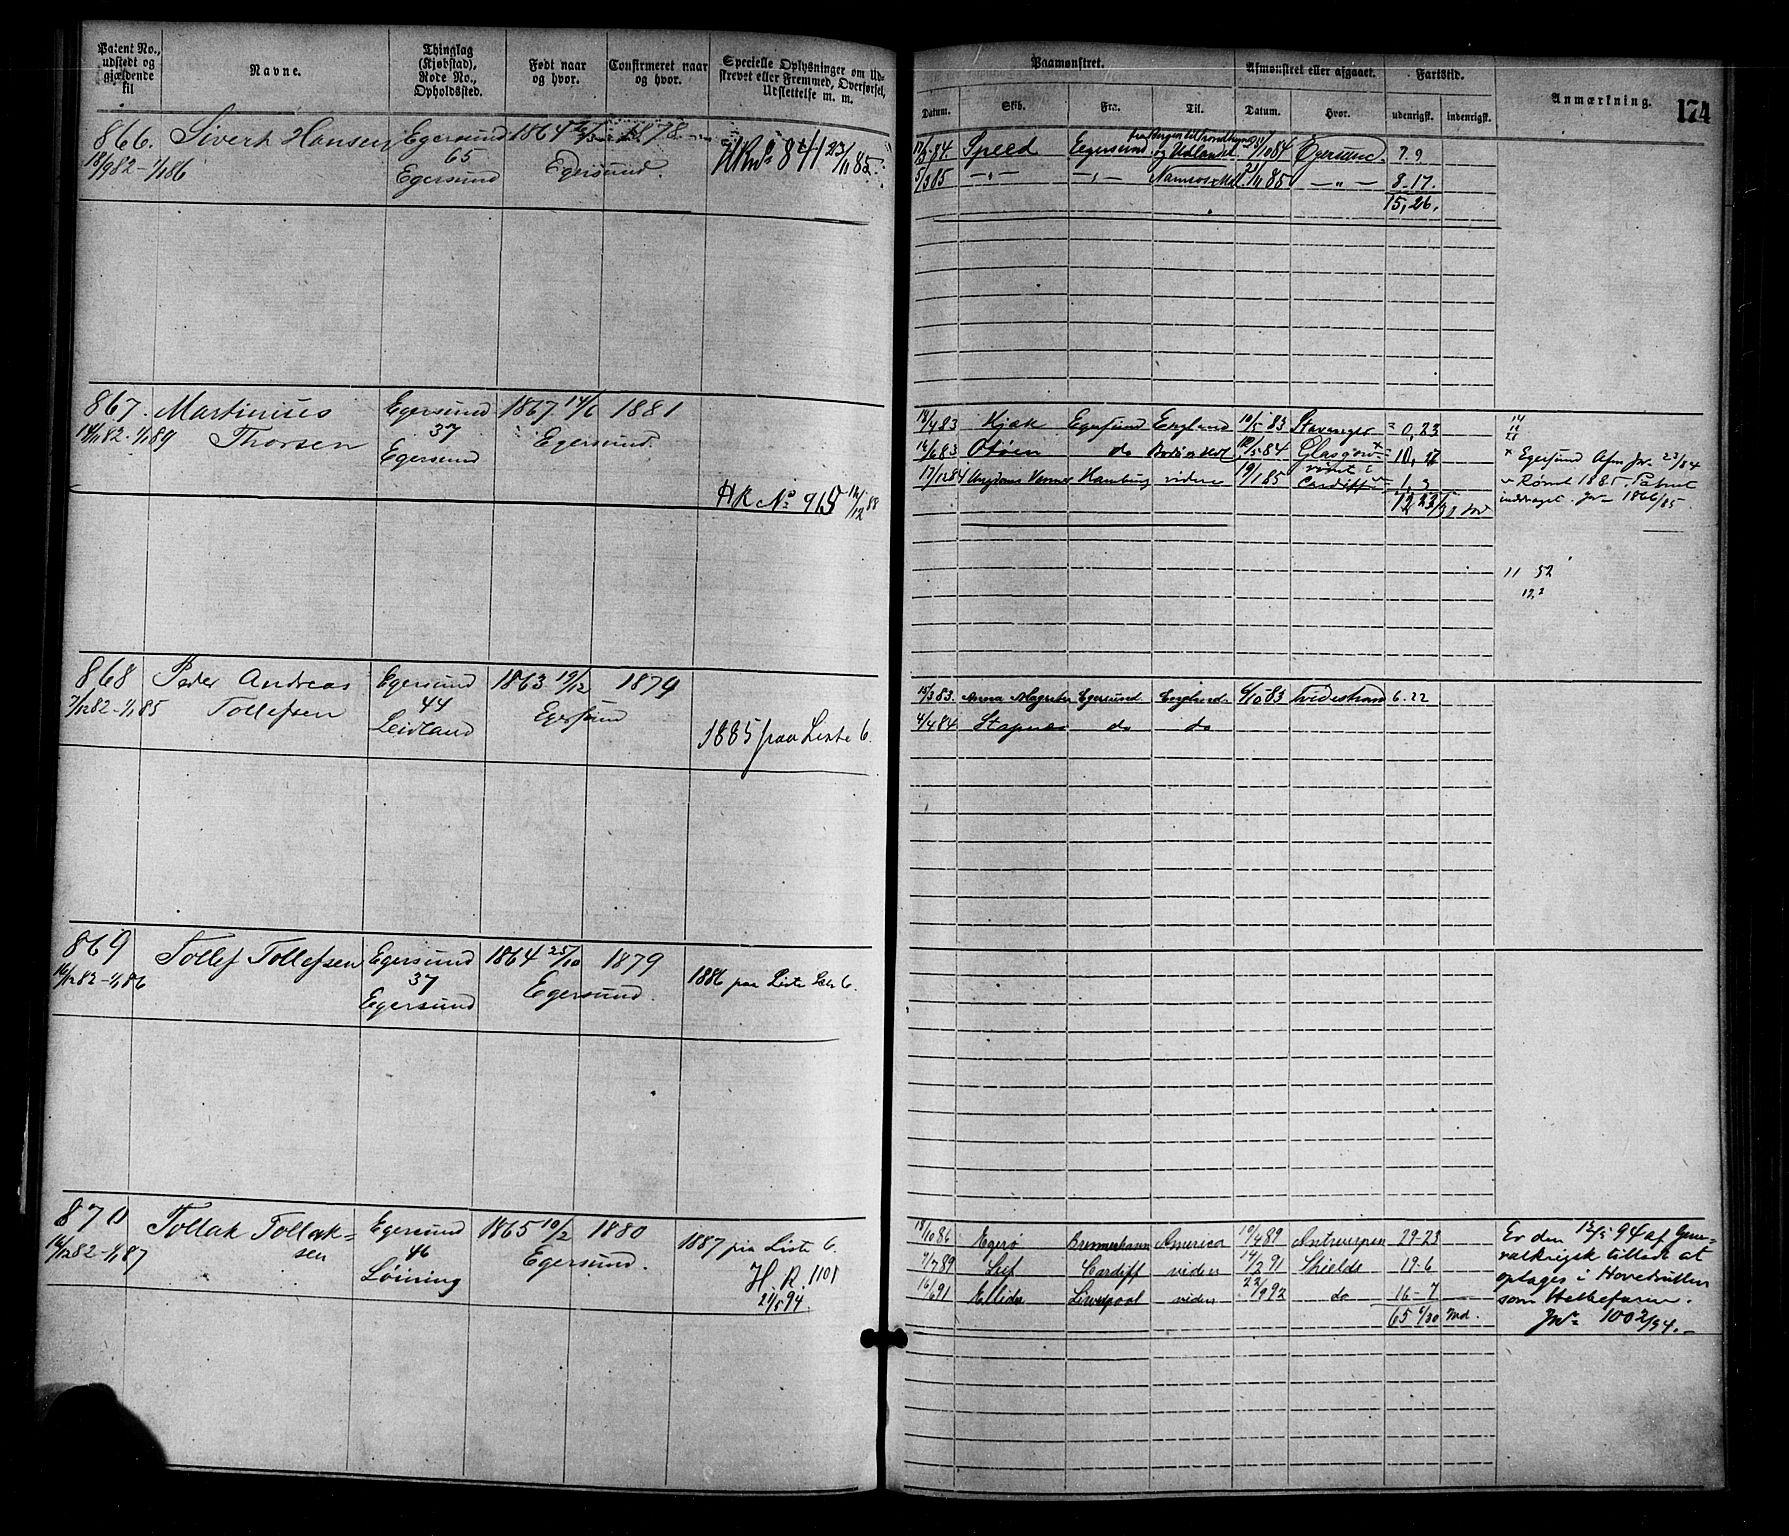 Patent No., udstedt og gjældende til
Navne.
Thinglag (Kjøbstad), Rode No., Opholdssted.
Født naar og hvor.
Confirmeret naar og hvor.
Specielle Oplysninger om Udstrevet eller Fremmed, Overførsel, Udslettelse m. m.
Paamønstret.
Afmønstret eller afgaaet.
Fartstid.
Anmærkning.
174
Datum. Skib. Fra. Til. Datum. Hvor. udenrigsk. indenrigsk.
866. Sivert Hansen Egersund 1864 1878
65
Egersund Egersund.
23/11 85.
84. Speed Egersund og Udlandet 84 Egersund. 7.9
5/3 85 —„— —„— 85 —„— 8.17.
15,26.
867. Martinius Egersund 1867 14/6 1881
Thorsen 37 Egersund.
Egersund
HR No 915 12/12 88
14/4 83 Kjæk Egersund England 10/5 83 Stavanger 0,23
83 do 84 Glasgow
17/12 84 Hamburg videre 19/1 85 Cardiff 1,3
Egersund Afm Jr. 23/84
Rømt 1885. Patent
inddraget. Jr 1866/85.
11 52
868 Peder Andreas Egersund 1863 19/12 1879
7/12 82–1/1 85 Tollefsen 44 Egersund
Leidland
1885 paa Liste 6.
15/3 83. Anna Magrete Egersund England 6/10 83 Tvedestrand 6.22
4/4 84. Stapnes do do
869 Tollef Tollefsen Egersund 1864 25/10 1879
16/12 82–1/1 86 37 Egersund.
Egersund
1886 paa Liste 6.
870 Tollak Tollaksen Egersund 1865 10/2 1880
16/12 82–1/1 87 46 Egersund.
Löining
1887 paa Liste 6.
H. R. 1101
21/5 94.
18/10 86 Egerø Bremerhaven America 10/4 89 Antwerpen 29–23
7/7 89 Leif Cardiff videre 14/2 91 Shields 19–6
16/6 91 Ellida Liverpool videre 22/9 92 do 16–7
65 6/30 Md.
Er den 12/5 94 af Generalkrigsk. tilladt at
optages i Hovedrullen
som Helbefaren.
Jr 1002/94.